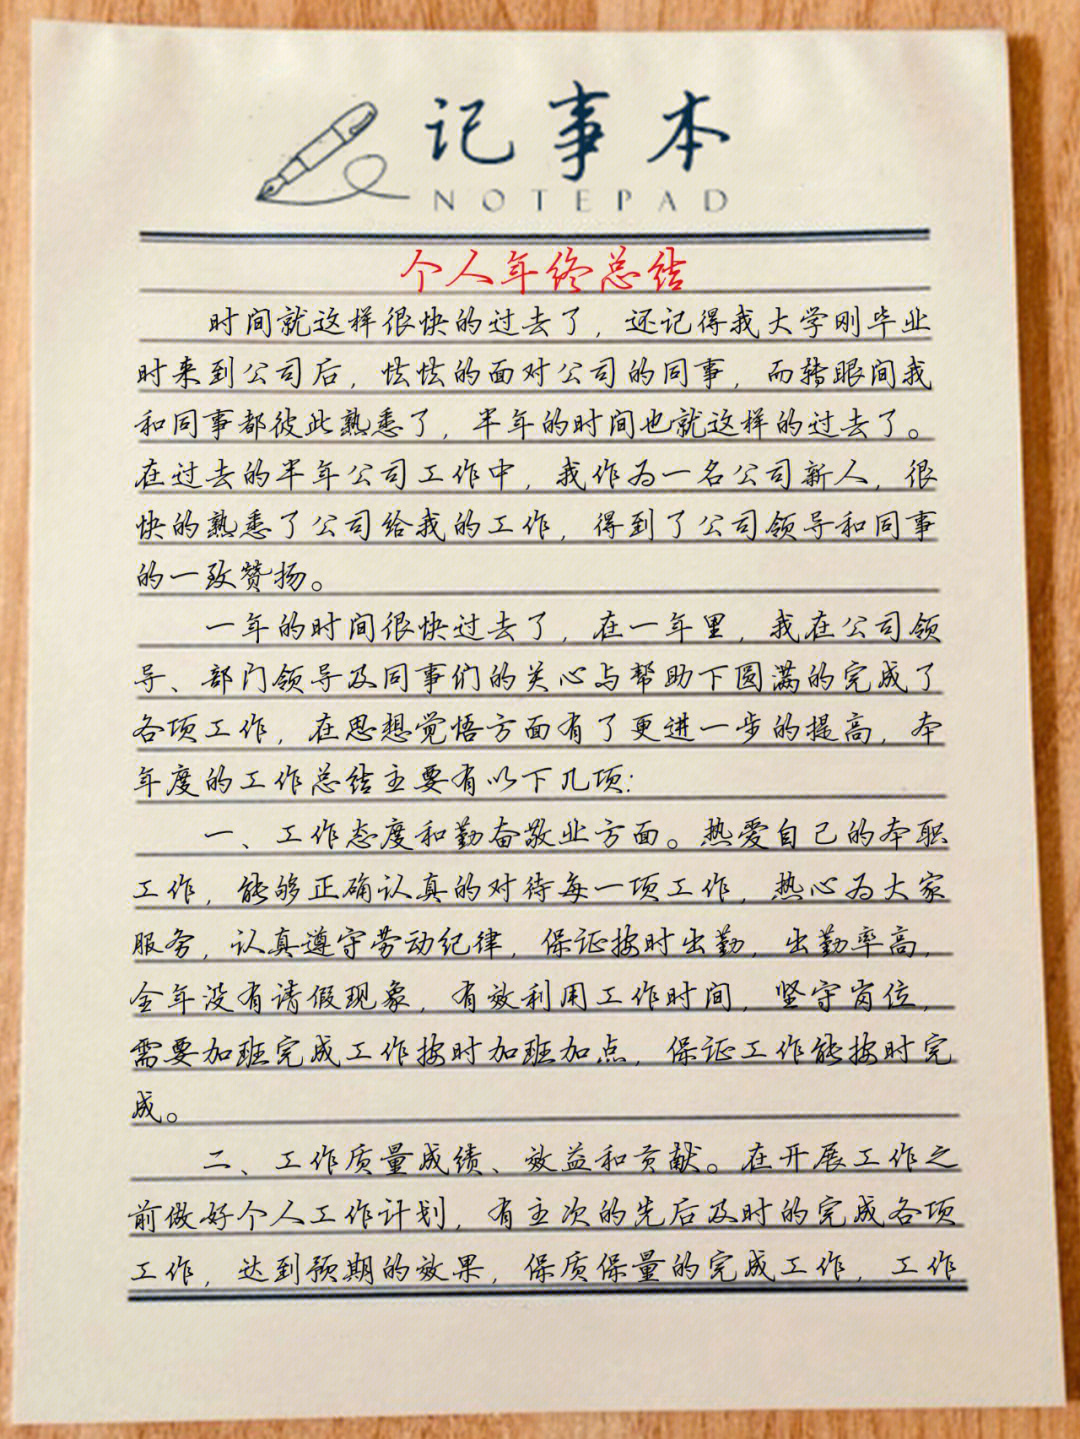 记事本
NOTEPAD
个人年终总结
时间就这样很快的过去了，还记得我大学刚毕业
时来到公司后，怯怯的面对公司的同事，而转眼间我
和同事都彼此熟悉了，半年的时间也就这样的过去了。
在过去的半年公司工作中，我作为一名公司新人，很
快的熟悉了公司给我的工作，得到了公司领导和同事
的一致赞扬。
一年的时间很快过去了，在一年里，我在公司领
导、部门领导及同事们的关心与帮助下圆满的完成了
各项工作，在思想觉悟方面有了更进一步的提高，本
年度的工作总结主要有以下几项：
一、工作态度和勤奋敬业方面。热爱自己的本职
工作，能够正确认真的对待每一项工作，热心为大家
服务，认真遵守劳动纪律，保证按时出勤，出勤率高，
全年没有请假现象，有效利用工作时间，坚守岗位，
需要加班完成工作按时加班加点，保证工作能按时完
成。
二、工作质量成绩、效益和贡献。在开展工作之
前做好个人工作计划，有主次的先后及时的完成各项
工作，达到预期的效果，保质保量的完成工作，工作